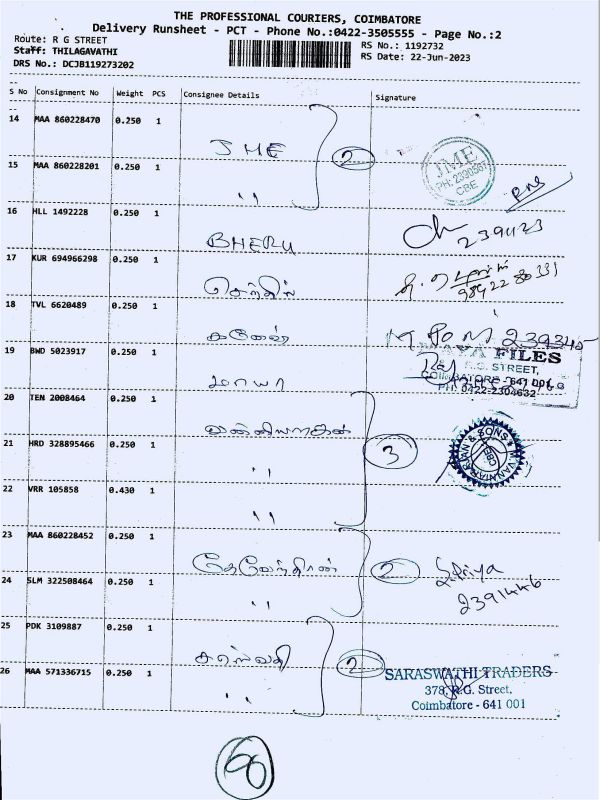 THE PROFESSIONAL COURIERS, COIMBATORE
Delivery Runsheet - PCT - Phone No.:0422-3505555 - Page No.:2
Route: R G STREET
RS No.: 1192732
Staff: THILAGAVATHI
RS Date: 22-Jun-2023
DRS No.: DCJB119273202
S No Consignment No Weight PCS Consignee Details Signature
14 MAA 860228470 0.250 1 JME 2
JME
PH: 2390567
CBE
15 MAA 860228201 0.250 1 ,,
16 HLL 1492228 0.250 1 BHERU
17 KUR 694966298 0.250 1 செந்தில்
18 TVL 6620489 0.250 1 கணேஷ்
19 BWD 5023917 0.250 1 மாயா
MAYA FILES
R.G. STREET,
COIMBATORE - 641 001
PH: 0422-2304632
20 TEN 2008464 0.250 1
21 HRD 328895466 0.250 1 ,, 3
& SONS
CBE
22 VRR 105858 0.430 1 ,,
23 MAA 860228452 0.250 1 தேவேந்திரன் 2 S.Priya
2391446
24 SLM 322508464 0.250 1 ,,
25 PDK 3109887 0.250 1 சரஸ்வதி 2
SARASWATHI TRADERS
378, R.G. Street,
Coimbatore - 641 001
26 MAA 571336715 0.250 1 ,,